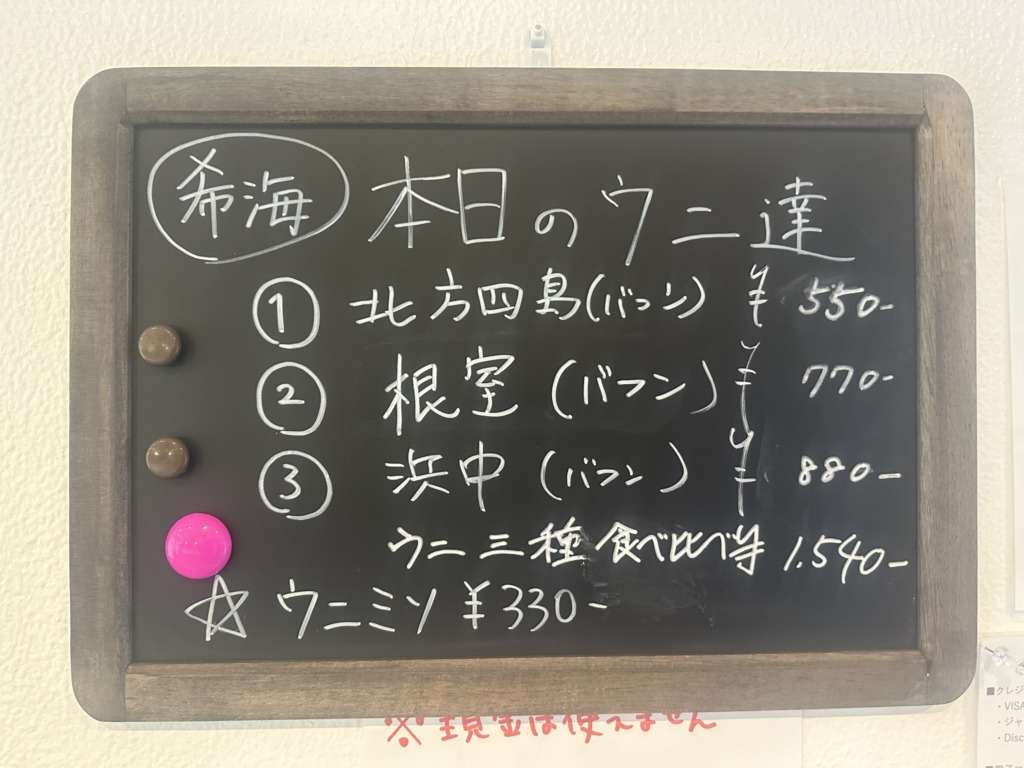 希海 本日のウニ達
① 北方四島(バフン) ¥ 550-
② 根室(バフン) ¥ 770-
③ 浜中(バフン) ¥ 880-
ウニ三種食べ比べ 1.540-
☆ ウニミソ ¥330-
※現金は使えません
■クレジ
・VISA
・ジャ
・Disc